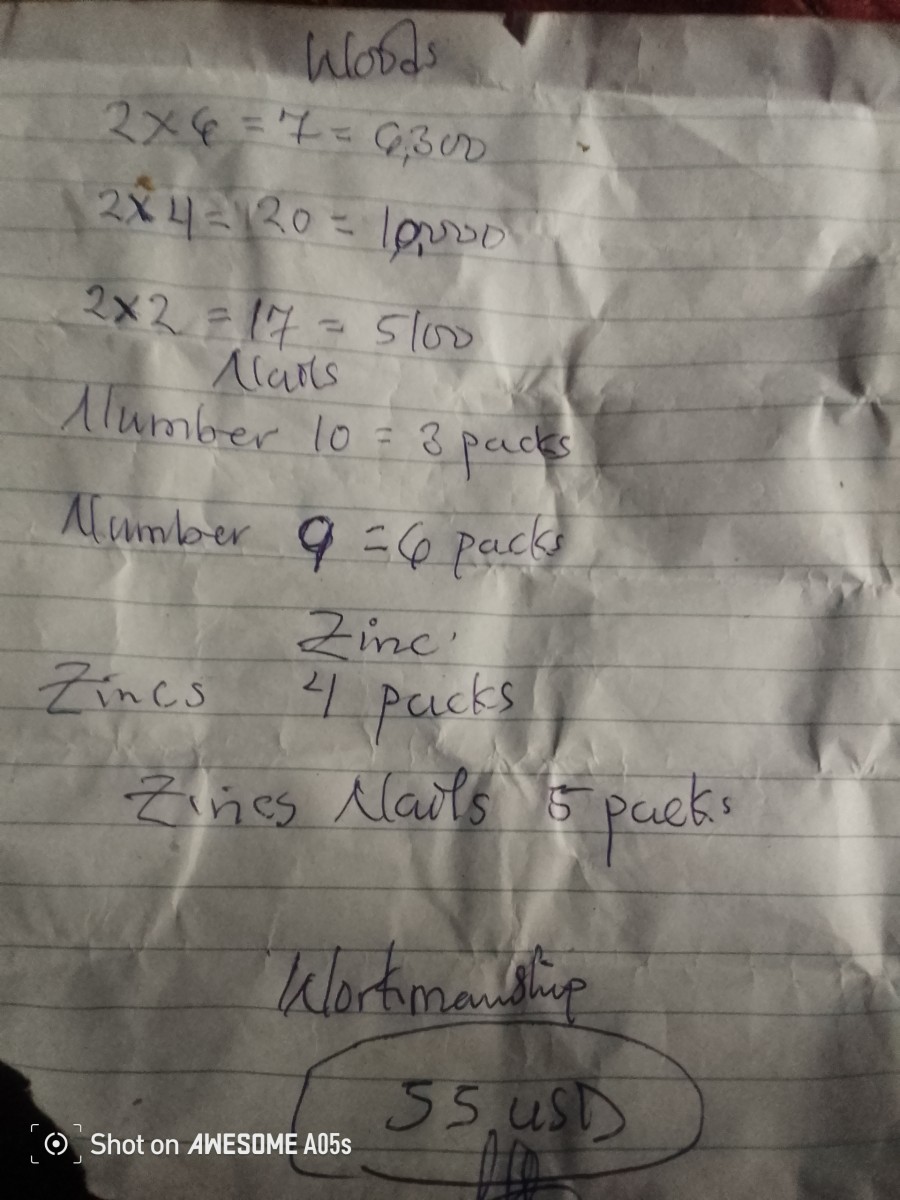 Woods
2x6 = 7 = 6,300
2x4 = 20 = 10,000
2x2 = 17 = 5100
Nails
Number 10 = 3 packs
Number 9 = 6 packs
Zinc
Zincs 4 packs
Zincs Nails 5 packs
Workmanship
55 USD
Shot on AWESOME A05s